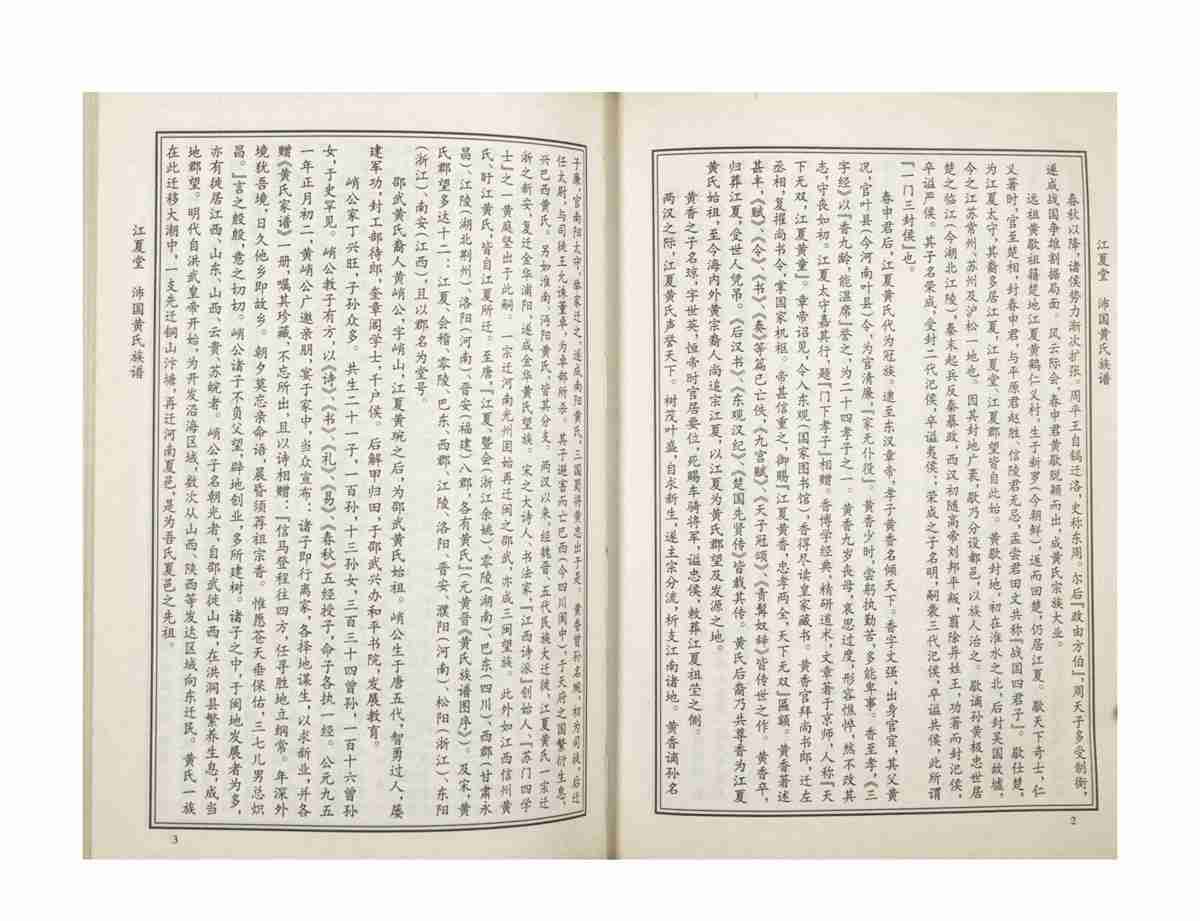 江夏堂 沛国黄氏族谱
春秋以降，诸侯势力渐次扩张。周平王自镐迁洛，史称东周。尔后『政由方伯』，周天子多受制衡，
遂成战国争雄割据局面。风云际会，春申君黄歇脱颖而出，成黄氏宗族大业。
远祖黄歇祖籍楚地江夏黄鹤仁义村，生于新罗（今朝鲜），遂而回楚，仍居江夏。歇天下奇士，仁
义著时，官至楚相，封春申君，与平原君赵胜、信陵君无忌、孟尝君田文共称『战国四君子』。歇仕楚，
为江夏太守，其裔多居江夏，江夏堂、江夏郡望皆自此始。黄歇封地，初在淮水之北，后封吴国故墟，
今之江苏常州、苏州及沪松一地也。因其封地广袤，歇乃分设都邑，以族人治之。歇谪孙黄极忠世居
楚之临江（今湖北江陵），秦末起兵反秦暴政，西汉初随高帝刘邦平叛，翦除异姓王，功著而封汜侯，
卒谥严侯。其子名荣成，受封二代汜侯，卒谥夷侯、。荣成之子名明，嗣袭三代汜侯，卒谥共侯，此所谓
『一门三封侯』也。
春申君后，江夏黄氏代为冠族。逮至东汉章帝，孝子黄香名倾天下。香字文强，出身官宦，其父黄
况，官叶县（今河南叶县）令，为官清廉，『家无仆役』。黄香少时，尝躬执勤苦，多能卑事。香至孝，《三
字经》以『香九龄，能温席』誉之，为二十四孝子之一。黄香九岁丧母，哀思过度，形容憔悴，然不改其
志，守丧如初。江夏太守嘉其行，题『门下孝子』相赠。香博学经典，精研道术，文章著于京师，人称『天
下无双，江夏黄童』。章帝诏见，令入东观（国家图书馆），香得尽读皇家藏书。黄香官拜尚书郎，迁左
丞相，复擢尚书令，掌国家机枢。帝甚信重之，御赐『江夏黄香，忠孝两全，天下无双』匾额。黄香著述
甚丰，《赋》、《令》、《书》、《奏》等篇已亡佚，《九宫赋》、《天子冠颂》、《责髯奴辞》皆传世之作。黄香卒，
归葬江夏，受世人凭吊。《后汉书》、《东观汉纪》、《楚国先贤传》皆载其传。黄氏后裔乃共尊香为江夏
黄氏始祖，至今海内外黄宗裔人尚追宗江夏，以江夏为黄氏郡望及发源之地。
黄香之子名琼，字世英，恒帝时官居要位，死赐车骑将军，谥忠侯，敕葬江夏祖茔之侧。
两汉之际，江夏黄氏声誉天下。树茂叶盛，自求新生，遂主宗分流，析支江南诸地。黄香谪孙名
2
子廉，官南阳太守，举家济迁之，遂成南阳黄氏，三国蜀将黄忠出于是。黄香曾孙名琬，相为司徒，后迁
任太尉，与司徒王允诛董卓，为卓部所杀。其子避害而亡巴西（今四川阆中），于天府之国繁衍生息，
兴巴西黄氏。另如淮南、沔阳黄氏，皆其分支。两汉以来，经魏晋、五代民族大迁徙，江夏黄氏一宗迁
浙之新安，复迁金华浦阳，遂成金华黄氏望族。宋之大诗人、书法家、『江西诗派』创始人、『苏门四学
士』之一黄庭坚出于此嗣。一宗迁河南光州固始再迁闽之邵武，亦成三闽望族。此外如江西信州黄
氏、盱江黄氏，皆自江夏所迁。至唐，『江夏、暨会（浙江余姚）、零陵（湖南）、巴东（四川）、西郡（甘肃永
昌）、江陵（湖北荆州）、洛阳（河南）、晋安（福建）八郡，各有黄氏』（元黄晋《黄氏族谱图序》）。及宋，黄
氏郡望多达十二：江夏、会稽、零陵、巴东、西郡、江陵、洛阳、晋安、濮阳（河南）、松阳（浙江）、东阳
（浙江）、南安（江西），且以郡名为堂号。
邵武黄氏裔人黄峭公，字峭山，江夏黄琬之后，为邵武黄氏始祖。峭公生于唐五代，智勇过人，屡
建军功，封工部待郎，奎章阁学士，千户侯。后解甲归田，于邵武兴办和平书院，发展教育。
峭公家丁兴旺，子孙众多。共生二十一子，一百孙，十三孙女，三百三十四曾孙，一百十六曾孙
女，于史罕见。峭公教子有方，以《诗》、《书》、《礼》、《易》、《春秋》五经授子，命子各执一经。公元九五
一年正月初二，黄峭公广邀亲朋，宴于家中，当众宣布：诸子即行离家，各择地谋生，以求新业，并各
赠《黄氏家谱》一册，嘱其珍藏，不忘所出，且以诗相赠：『信马登程往四方，任寻胜地立纲常。年深外
境犹吾境，日久他乡即故乡。朝夕莫忘亲命语，晨昏须荐祖宗香。惟愿苍天垂保佑，三七儿男总炽
昌。』言之殷殷，意之切切。峭公诸子不负父望，辟地创业，多所建树。诸子之中，于闽地发展者为多，
亦有徙居江西、山东、山西、云贵、苏皖者。峭公子名朝光者，自邵武徙山西，在洪洞县繁养生息，成当
地郡望。明代自洪武皇帝开始，为开发沿海区域，数次从山西、陕西等发达区域向东迁民。黄氏一族
在此迁移大潮中，一支先迁铜山汴塘，再迁河南夏邑，是为吾氏夏邑之先祖。
江夏堂 沛国黄氏族谱
3